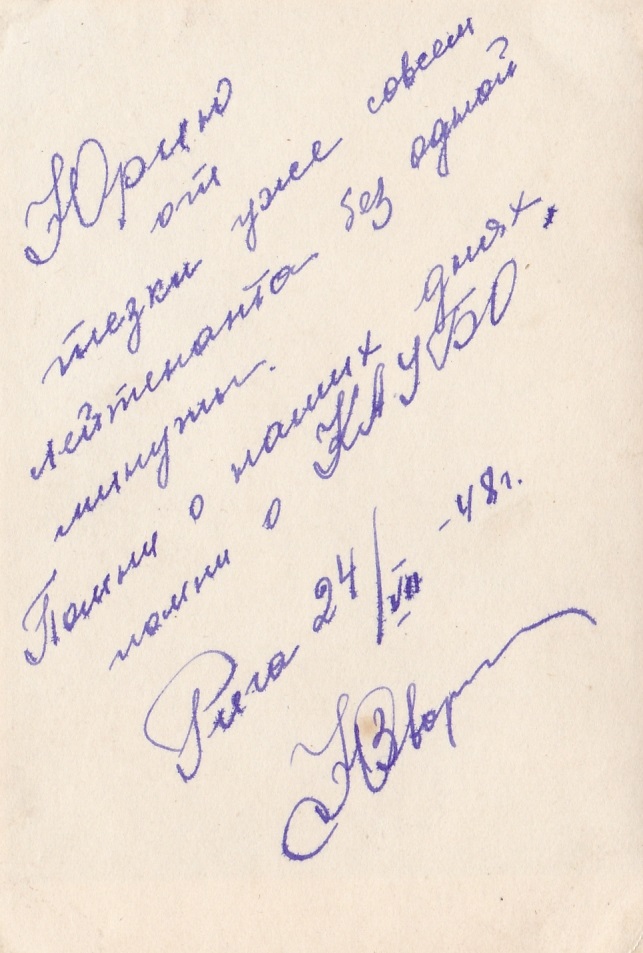 Юрию
от
тезки уже совсем
лейтенанта без одной
минуты.
Помни о наших днях,
помни о КАУБО
Рига 24/VII -48г.